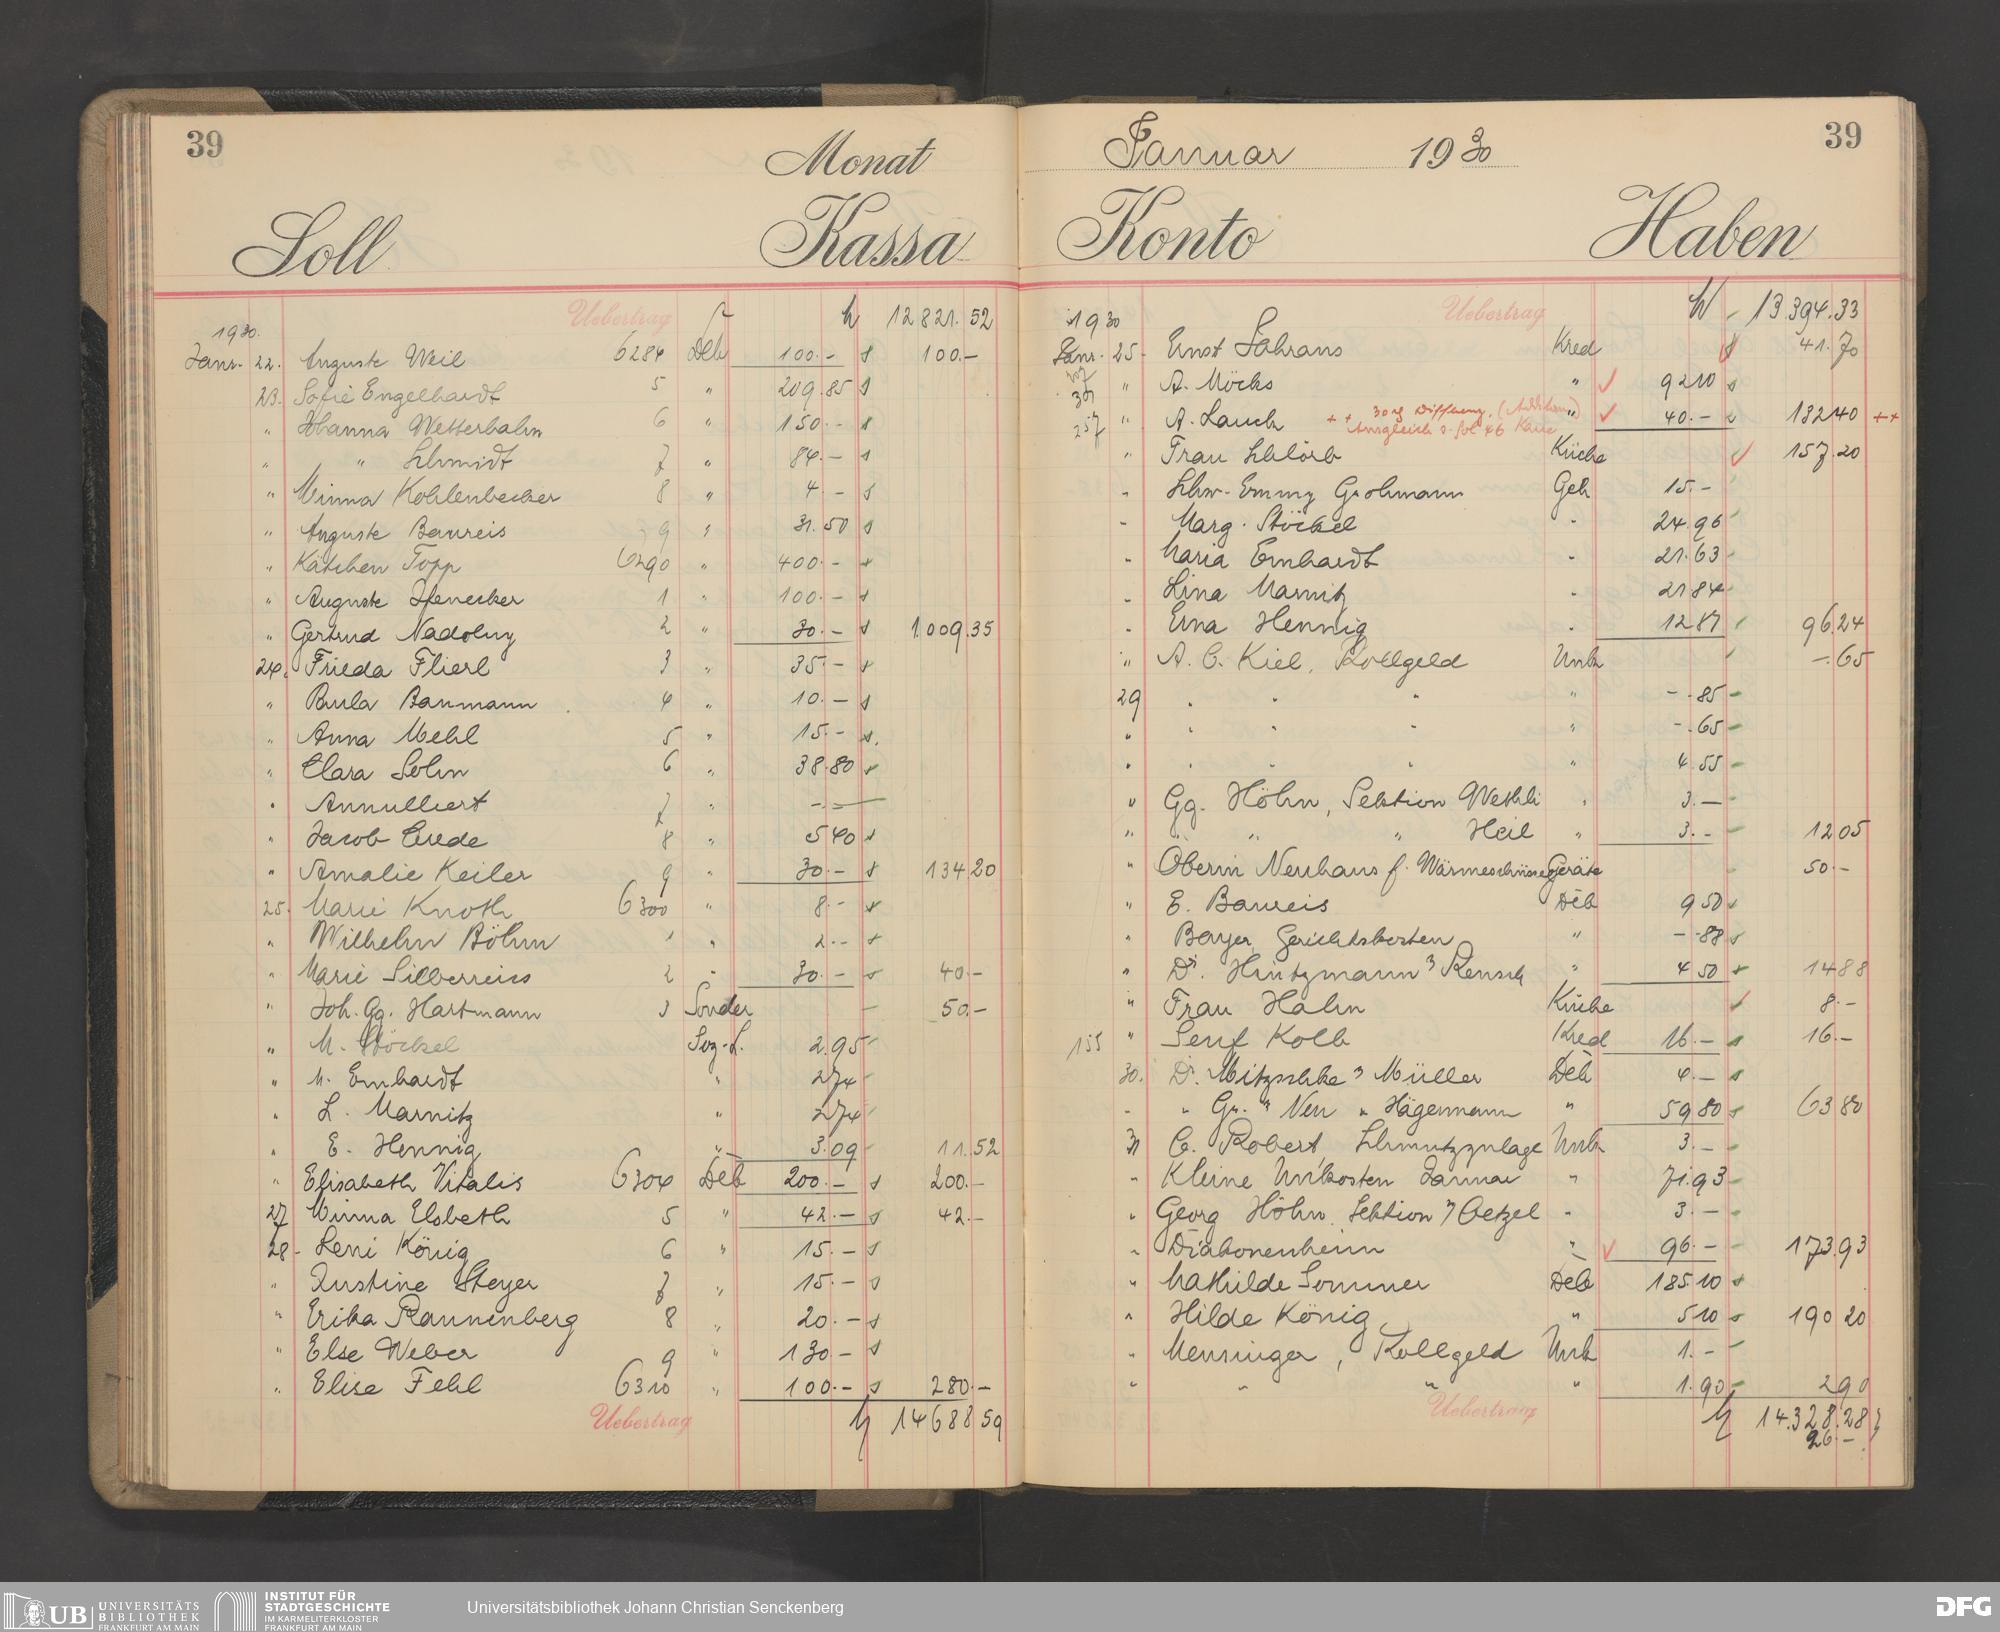 39
Monat
Soll Kassa
Uebertrag 12821.52
1930.
Janr. 22. Auguste Weil 6284 Deb 100.- 100.-
23. Sofie Engelhardt 5 " 209.85
" Johanna Wetterhahn 6 " 150.-
" " Schmidt 7 " 84.-
" Minna Kohlenbecker 8 " 4 -
" Auguste Baureis 9 " 31.50
" Kätchen Topp 6290 " 400.-
" Auguste 1 " 100.-
" Gertrud Nadolny 2 " 30.- 1.009.35
24. Frieda Flierl 3 35.-
" Paula Baumann 4 " 10.-
" Anna Mehl 5 " 15.-
" Clara Sohn 6 " 38.80
" Annulliert 7 " -.-
" Jacob Cude 8 " 5 40
" Amalie Keiler 9 " 30.- 134 20
25. Marie Knoth 6300 " 8.-
" Wilhelm Böhm 1 " 2.-
" Marie Silberreiss 2 " 30.- 40.-
" Joh. Gg. Hartmann 3 Sonder 50.-
" M. Stöckel Soz-L. 2.95
" M. Emhardt " 2 74
" L. Marnitz " 2 74
" E. Hennig " 3.09 11.52
" Elisabeth Vitalis 6304 Deb 200.- 200.-
27 Minna Elsbeth 5 " 42.- 42.-
28- Leni König 6 " 15.-
" Justine Steyer 7 " 15.-
" Erika Rannenberg 8 " 20.-
" Else Weber 9 " 130-
" Elise Fehl 6310 " 100.- 280.-
Uebertrag 14688 59
39
Januar 1930
Konto Haben
Uebertrag 13.394.33
1930
Janr. 25- Ernst Sahrans Kred 41.70
" A. Möcks " 92 10
307
" A. Lauck " 40.- 132 40 ++
++ 30 Differenz. (Addition)
Ausgleich s. fol 46 Kasse
257
" Frau Schlörb Küche 157.20
" Schw. Emmy Grohmann Geh 15.-
" Marg. Stöckel " 24.96
" Maria Emhardt " 21.63
" Lina Marnitz " 21 84
" Erna Hennig " 12 87 96.24
" A. C. Kiel, Rollgeld Unk -.65
29 " " " " -.85
" " " " " -.65
" " " " " 4.55
" Gg. Höhn, Sektion Wethli " 3.-
" " " " Heil " 3.- 12 05
" Oberin Neuhaus f. Geräte 50.-
" E. Baureis Deb 9 50
" Bayer, Gerichtskosten " -.88
" Dr. Hintzmann & Rensch " 4 50 14 88
" Frau Hahn Küche 8.-
155 " Senf Kolb Kred 16.- 16.-
30. Dr. Mitzschke & Müller Deb 4.-
" " Gr. " Neu " Hägermann " 59 80 63 80
31 C. Robert, Schmutzzulage Unk 3.-
" Kleine Unkosten Januar " 71.93
" Georg Höhn, Sektion & Oetzel " 3.-
" Diakonenheim " 96.- 173.93
" Mathilde Sommer Deb 185.10
" Hilde König, " 5 10 190 20
" Mensinger, Rollgeld Unk 1.-
" " " " 1.90 2 90
Uebertrag 14.328.28
26.-
UB UNIVERSITÄTS
BIBLIOTHEK
FRANKFURT AM MAIN
INSTITUT FÜR
STADTGESCHICHTE
IM KARMELITERKLOSTER
FRANKFURT AM MAIN
Universitätsbibliothek Johann Christian Senckenberg
DFG